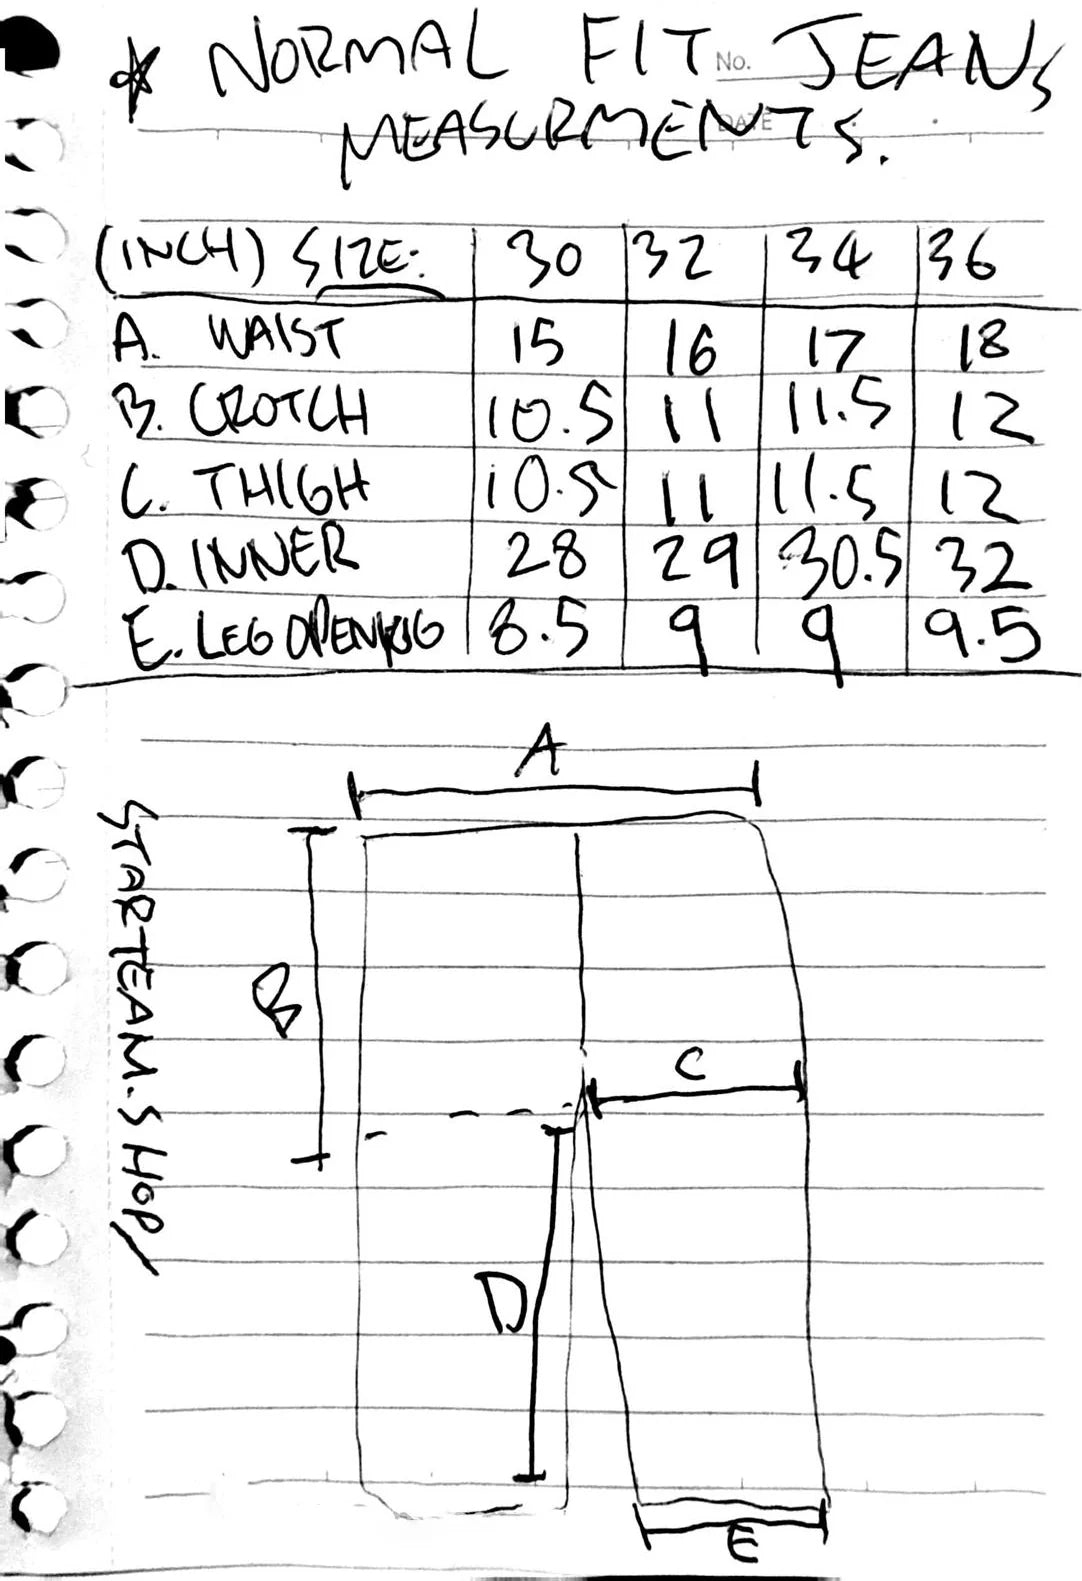 * NORMAL FIT JEANS
No.
MEASURMENTS.
DATE
(INCH) SIZE: 30 32 34 36
A. WAIST 15 16 17 18
B. CROTCH 10.5 11 11.5 12
C. THIGH 10.5 11 11.5 12
D. INNER 28 29 30.5 32
E. LEG OPENING 8.5 9 9 9.5
A
B
C
D
E
STARTEAM.SHOP/